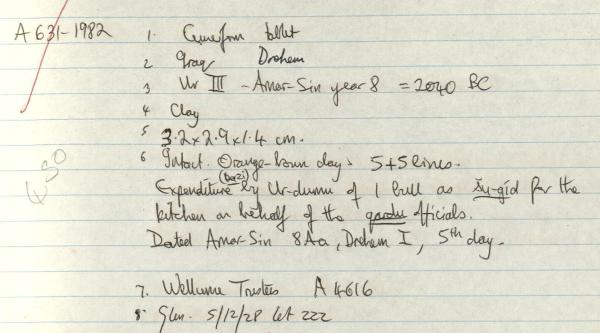 A 631-1982 1. Cuneiform tablet
2 Iraq Drehem
3 Ur III - Amar-Sin year 8 = 2040 BC
4 Clay
5 3.2 x 2.9 x 1.4 cm.
6 Intact. Orange-brown clay. 5+5 lines.
Expenditure (ba-zi) by Ur-dumu of 1 bull as šu-gíd for the
kitchen on behalf of the gardu officials.
Dated Amar-Sin 8 Aa, Drehem I, 5th day.
450
7. Wellcome Trustees A 4616
8. Glen. 5/12/28 lot 222